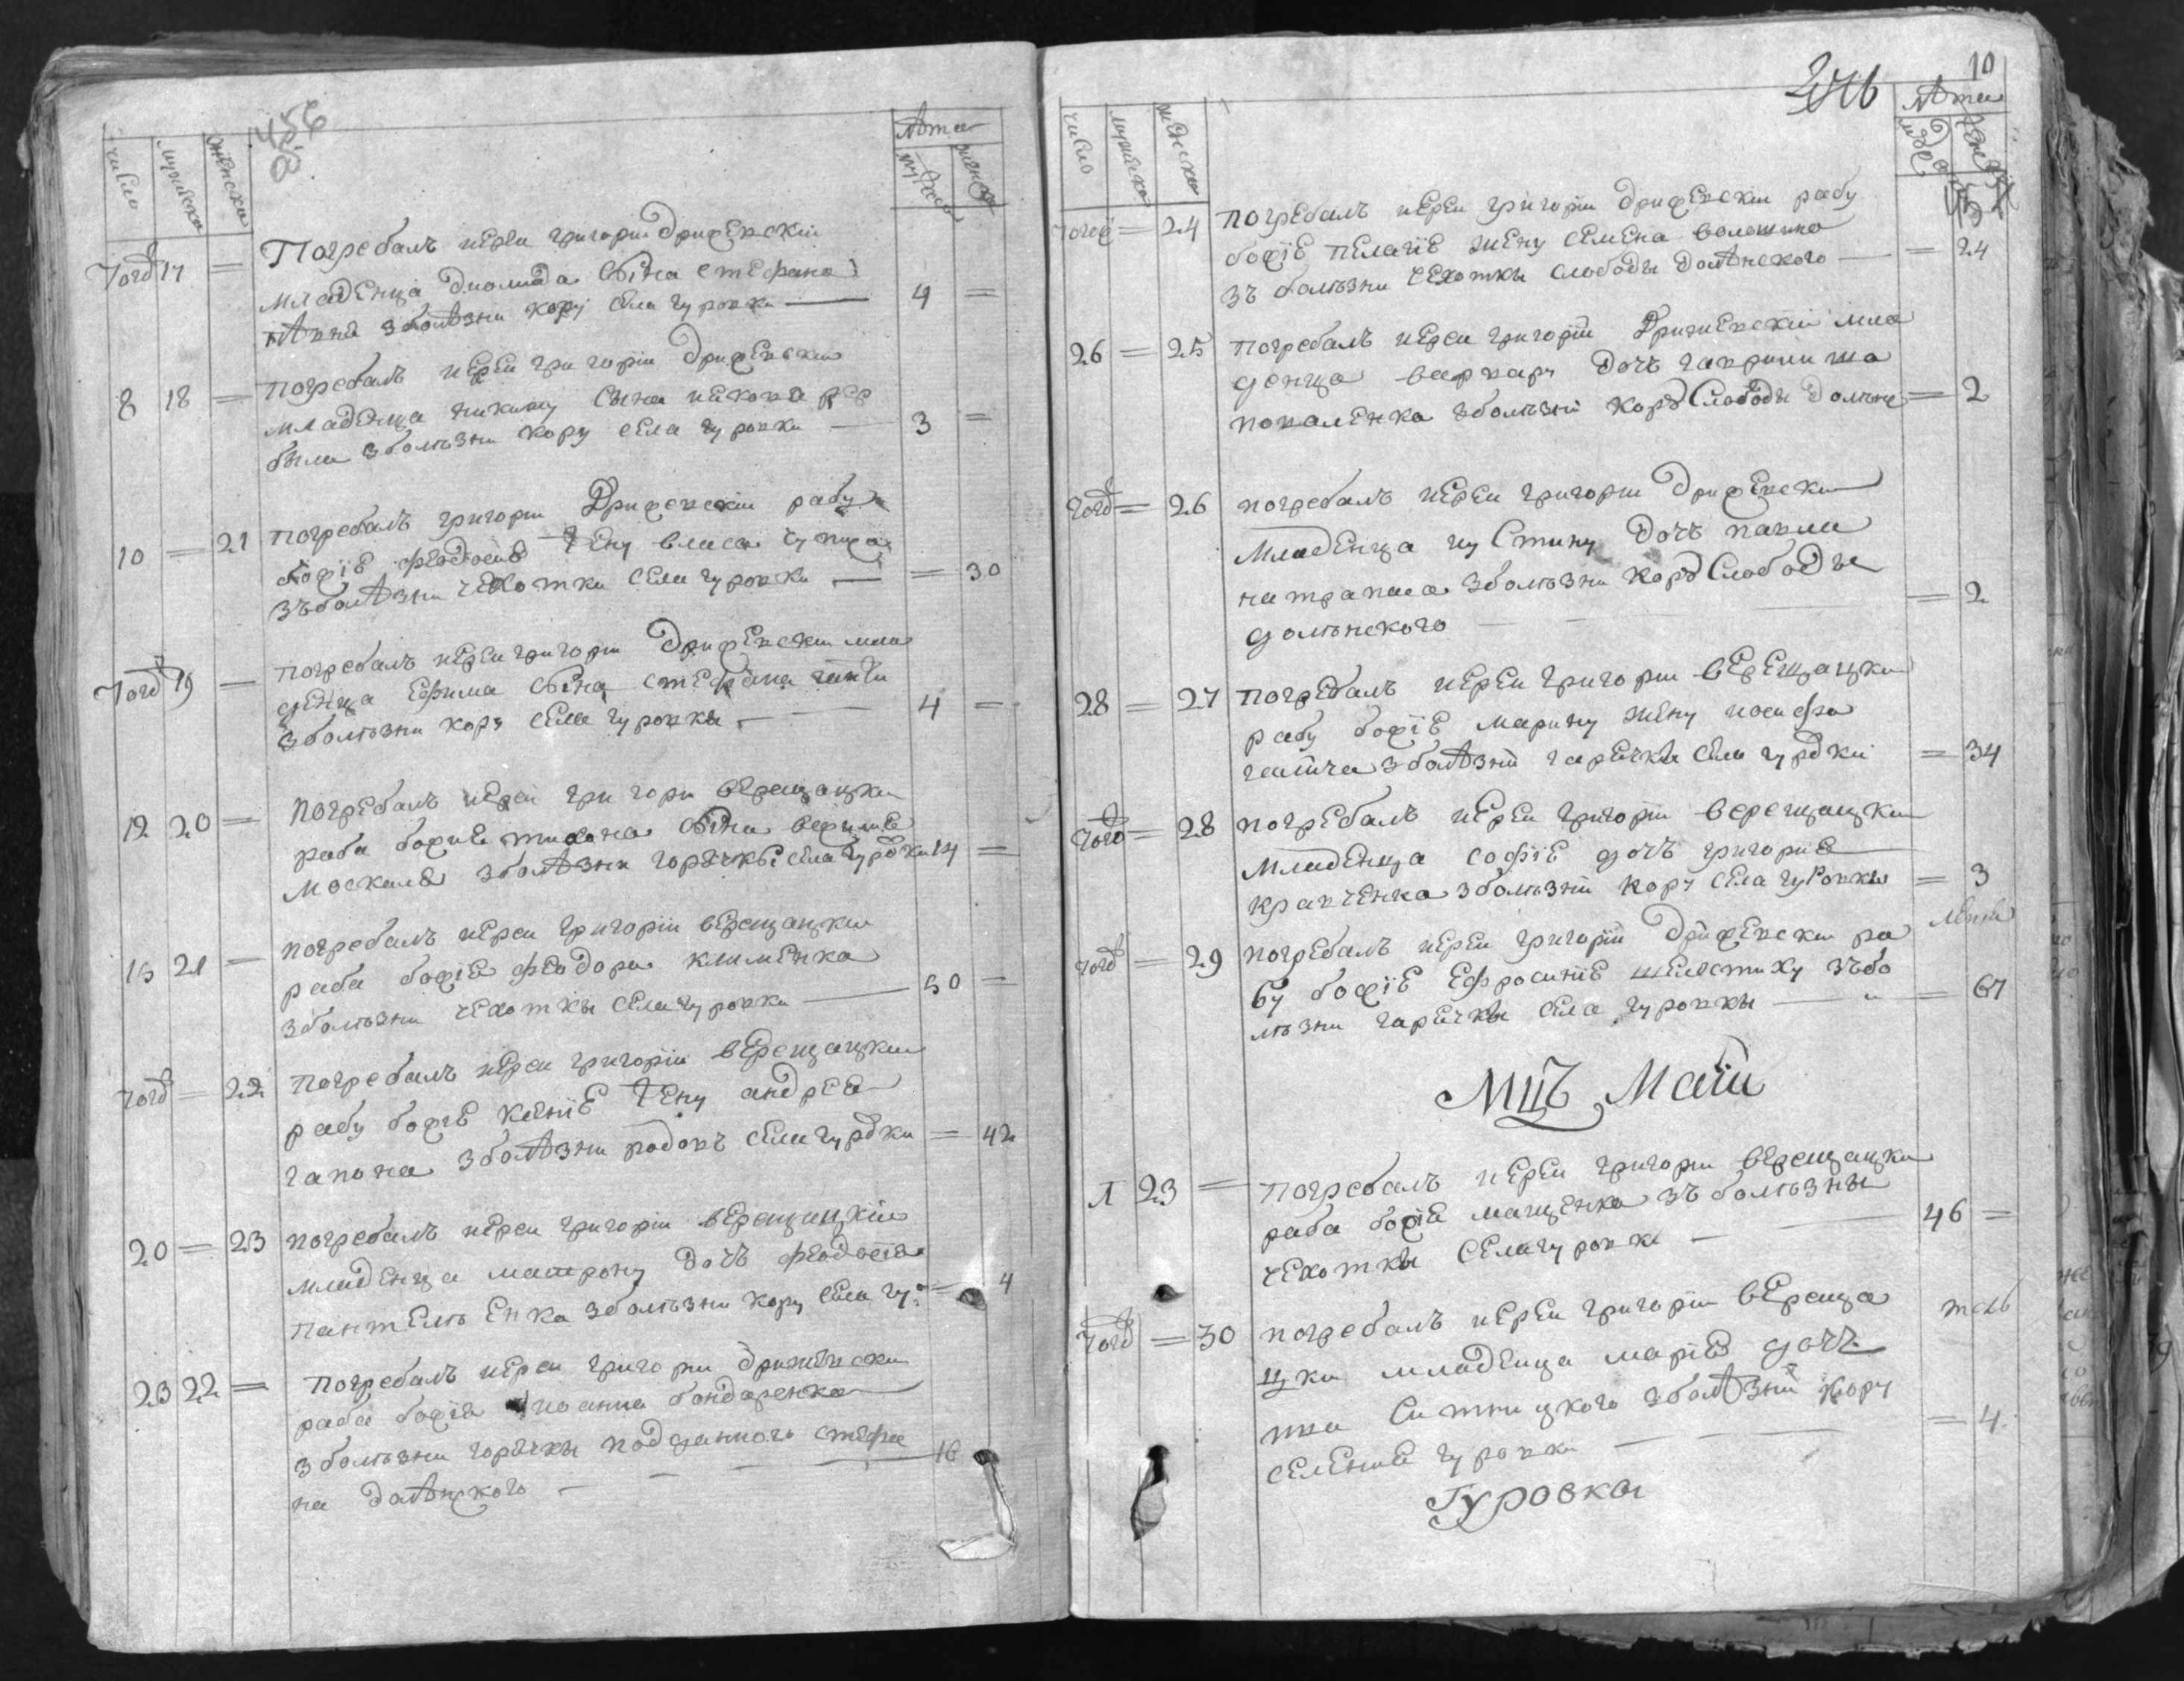 456
число мужеска женска
лѣта
мужеска женска
Тогож 17 =
Погребалъ иерей григории дрижевский
младенца диомида сына стефана
збалѣзни кору села гуровки — 4 =
8 18 =
погребалъ иерей григории дрижевски
младенца никиту сына иакова
были зболѣзни кору села гуровки — 3 =
10 = 21
погребалъ григории дрижевский рабу
божіе феодосію жену власа
зъболѣзни чехотки села гуровки — = 30
Тогож 19 =
погребалъ иерей григории дрижевски мла
денца Ефима сына стефана
зболѣзни кору села гуровки — 4 =
12 20 =
погребалъ иерей григори верещацки
раба божие тихона сына
москаля зболѣзни горячкы села гуровки 14 =
15 21 =
погребалъ иерей григории верещацки
раба божіе феодора клименка
зболѣзни чехоткы села гуровки — 50 =
Тогож = 22
погребалъ иерей григории верещацки
рабу божіе ксеніе жену андрея
гапона зболѣзни родовъ села гуровки = 42
20 = 23
погребалъ иерей григории верещицкій
младенца матрону дочъ феодосія
пантелѣенка зболѣзни кору села гу: = 4
23 22 =
погребалъ иерей григории дрижевски
раба божія иоанна бондаренка
зболѣзни горячкы подданного стефа
на далѣнского — — 16
246
10
число мужеска женска
лѣта
Тогож = 24
погребалъ иерей григории дрижевски рабу
божіе пелагіе жену семена волошина
зъ болѣзни чехоткы слободы далѣнского — = 24
26 = 25
погребалъ иерей григорій дрижевскій мла
денца варвару дочъ гавриила
коваленка зболѣзни кору слободы долѣнс = 2
Тогож = 26
погребалъ иерей григории дрижевски
младенца иустину дочъ павла
зболѣзни кору слободы
долѣнского — — = 2
28 = 27
погребалъ иерей григории верещацки
рабу божіе марину жену иосифа
зболѣзни гарячкы села гуровки = 34
Тогож = 28
погребалъ иерей григорій верещацки
младенца софіе дочъ григория
кравченка зболѣзни кору села гуровкы = 3
Тогож = 29
погребалъ иерей григорій дрижевски ра
бу божіе Ефросиніе шелестиху зъбо
лѣзни гарячкы села гуровкы — = 67
Мцъ Маїи
1 23 =
погребалъ иерей григории верещацки
раба божіе мащенка зъ болѣзны
чехоткы села гуровк — 46 =
Тогож = 30
погребалъ иерей григории вереща
цки младенца маріе дочъ
Ситницкого зболѣзни кору
селения гуровки — = 4
Гуровкы